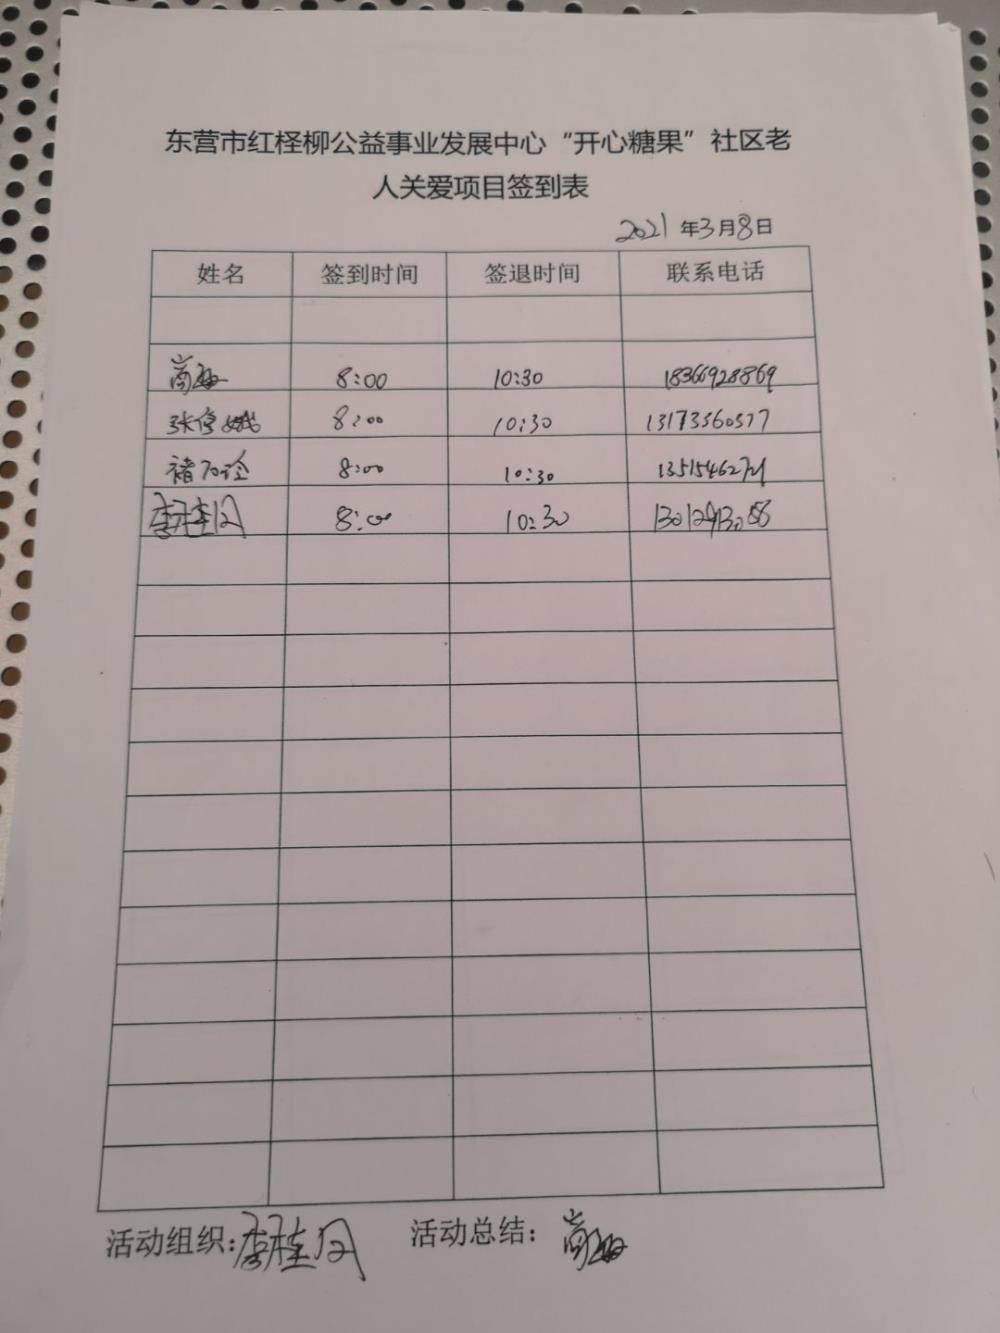 东营市红柽柳公益事业发展中心“开心糖果”社区老
人关爱项目签到表
2021 年3月8日
姓名 签到时间 签退时间 联系电话
8:00 10:30 18366928869
8:00 10:30 13173360577
8:00 10:30
李桂月 8:00 10:30
活动组织:李桂月 活动总结: